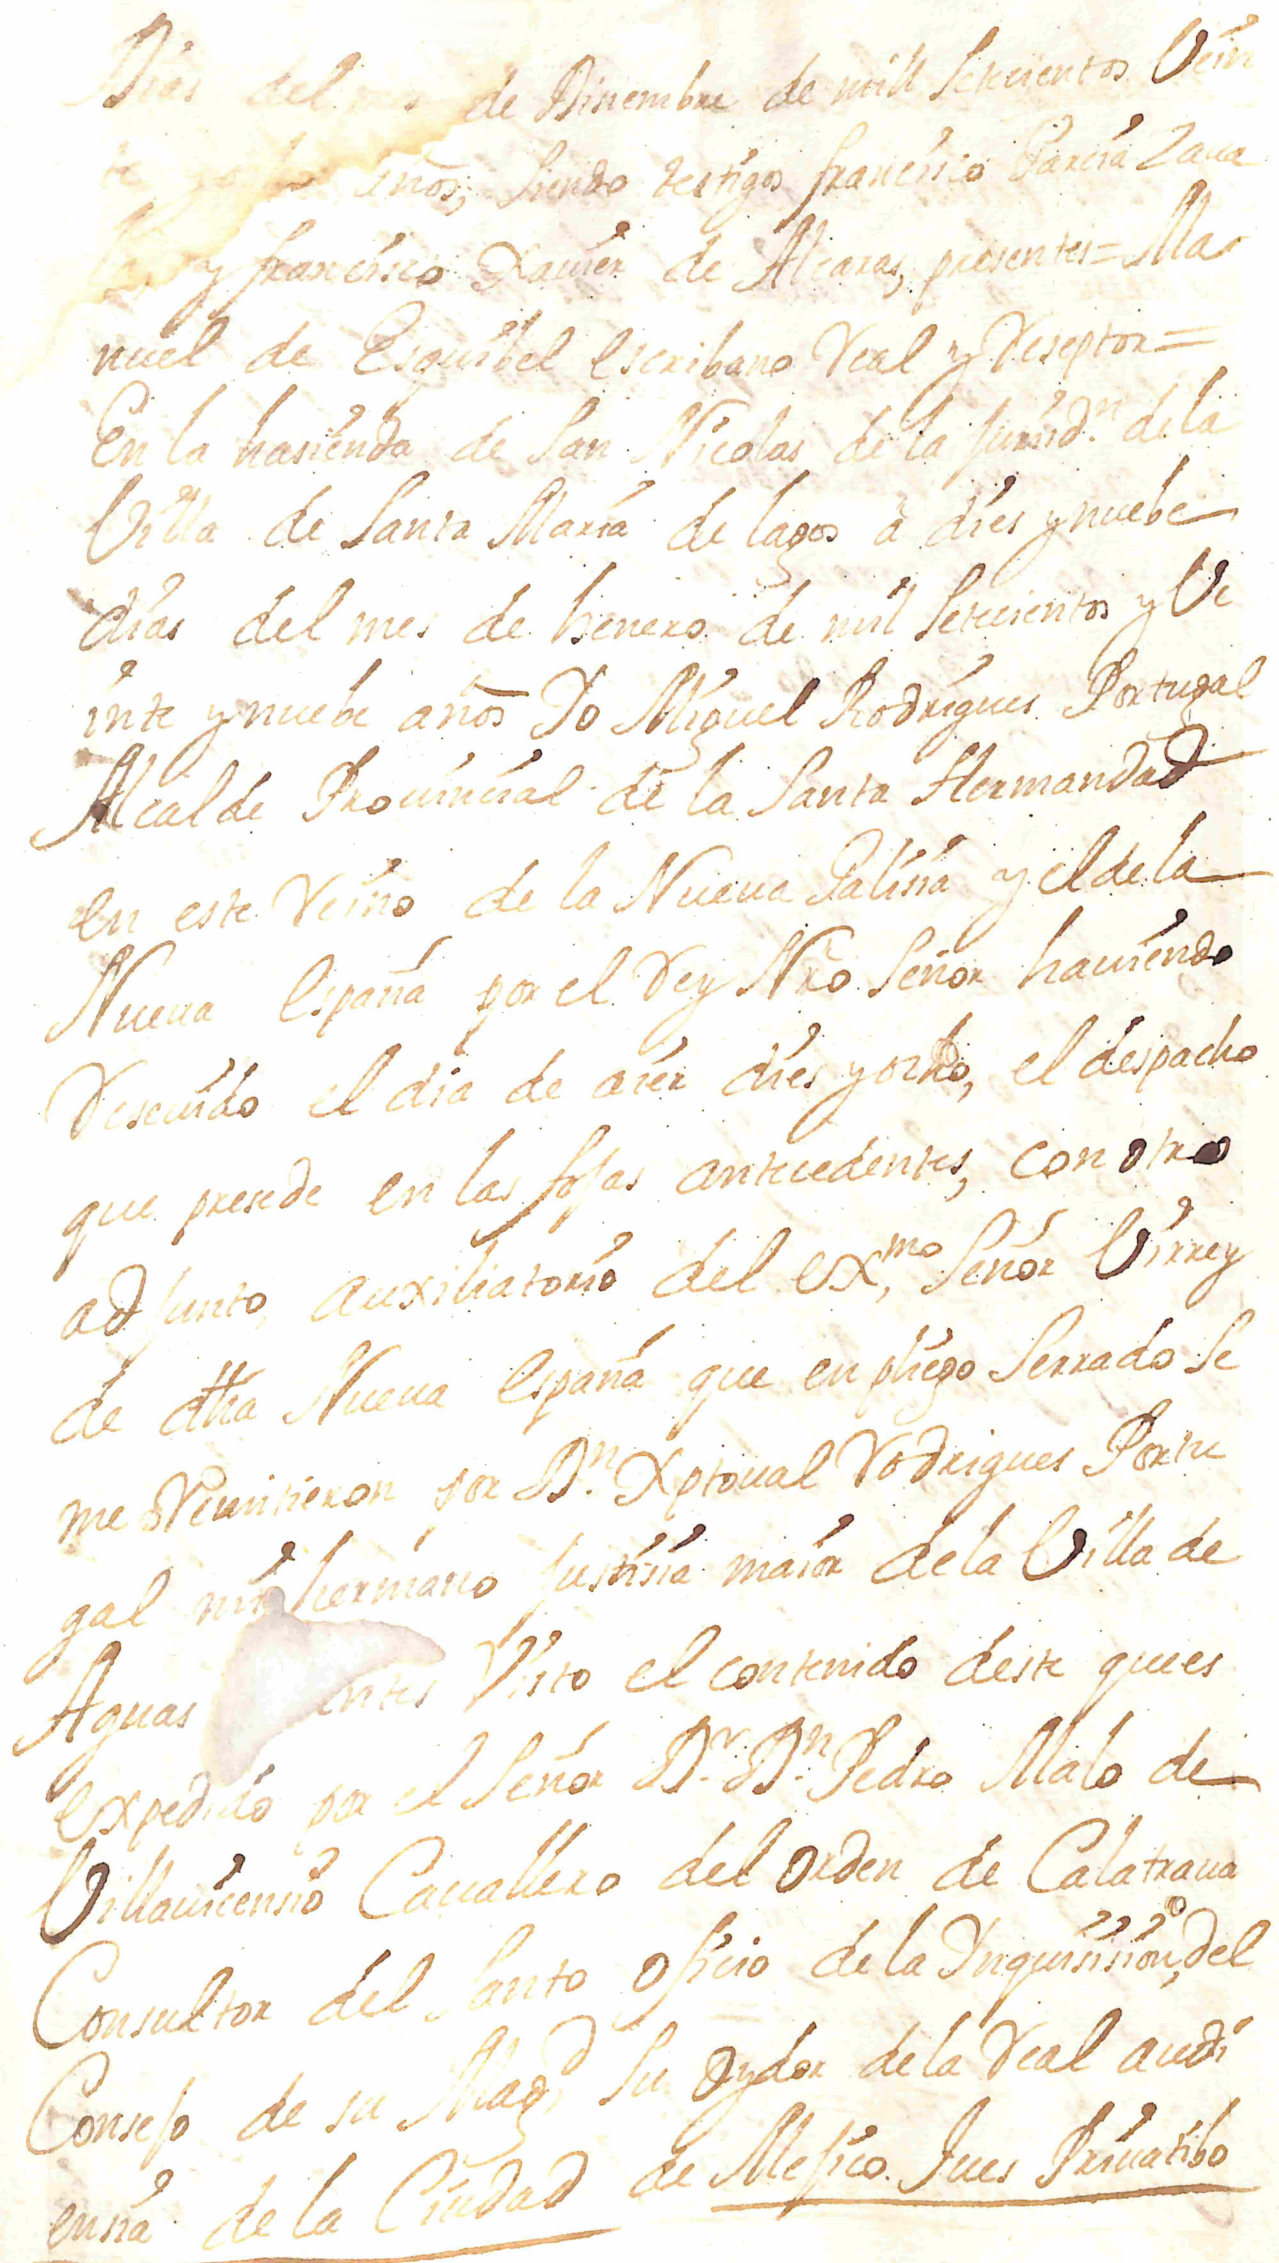 Dias del mes de Disiembre de mill Setecientos Vein
te y ocho años, siendo testigos francisco Garcia Zaua
la, y francisco Xauier de Alcaras, presentes = Ma
nuel de Esquibel escribano Real y Reseptor =
En la hasienda de San Nicolas de la Jurisdn. de la
Villa de Santa Maria de lagos à dies y nuebe
dias del mes de henero de mil Setecientos y Ve
inte y nuebe años Yo Miguel Rodrigues Portugal
Alcalde Prouincial de la Santa Hermandad
en este Reino de la Nueua Galisia y el de la
Nueua España por el Rey Nro Señor hauiendo
Reseuido el dia de aier dies y ocho, el despacho
que presede en las fojas antecedentes, con otro
adjunto, auxiliatorio del exmo, Señor Virrey
de dha Nueua España que en pliego Serrado Se
me Remitieron por Dn. Xptoual Rodrigues Portu
gal mi hermano Justisia maior de la Villa de
Aguas entes Visto el contenido deste que es
expedido por el Señor Dr. Dn. Pedro Malo de
Villauicensio Cauallero del orden de Calatraua
Consultor del Santo oficio de la Inquisision, del
Consejo de su Magd, Su Oydor de la Real audi
ensia de la Ciudad de Mejico. Jues Priuatibo